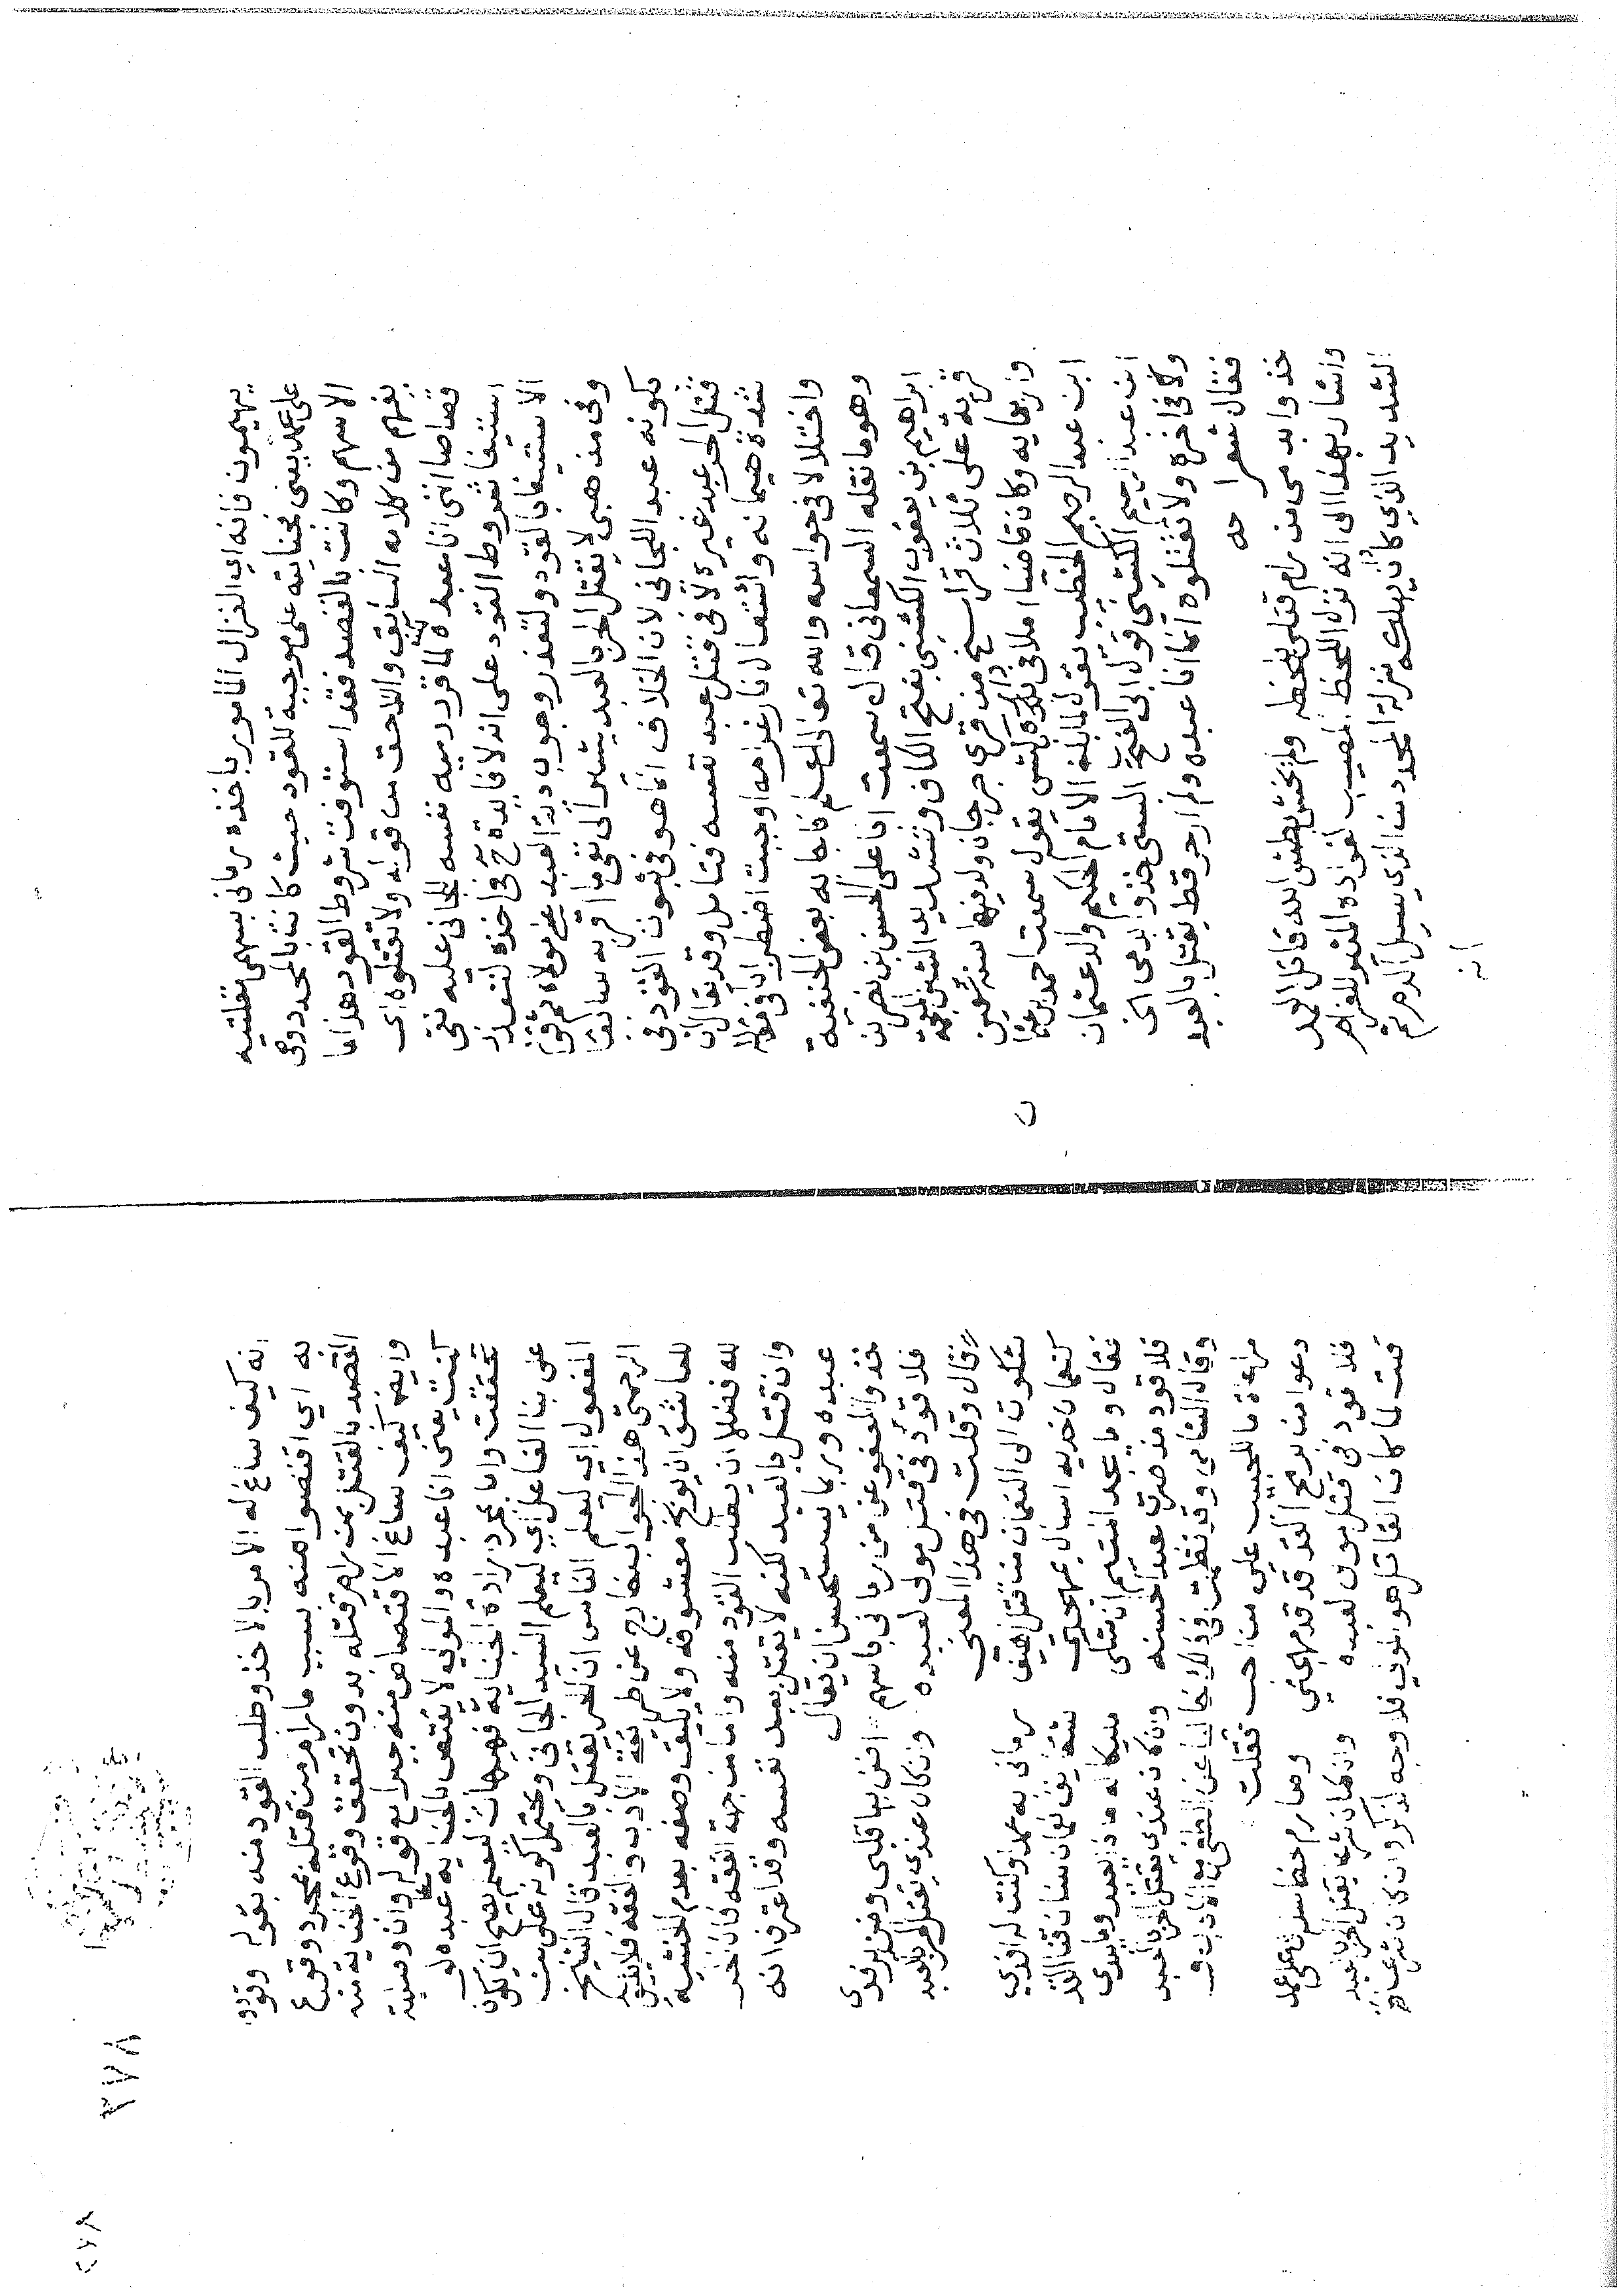 يهيمون فانه اي الغزال المامور باخذه رماني بسهمي مقلتيه
على عمد يعني بجنايته على موجبة للقود حيث كانت بالمحدد وهي
الاسهم وكانت بالقصد فقد استوفت شروط القود هذا ما
يفهم من كلامه السابق واللاحق من قوله ولا تقتلوه اي
قصاصا انني انا عبده لما قرر رميه نفسه الجاني عليه نفى
استيفا شروط القود على انه لا فايدة ح في اخذه لتعذر
الاستيفا بالقود ولتعذر وجوب دية العبد على مولاه ثم قوله
وفي مذهبي لا يقتل الحر بالعبد يشير الى نفي ما اقر به سابقا
كونه عبد الجاني لان الخلاف انما هو في ثبوت القود في
قتل الحر عبد غيره لا في قتل عبد نفسه فتامل وقد يقال ان
شدة هيمانه واشتعال نار غرامه اوجبت اضطرابا في مقاله
واختلالا في حواسه والله تعالى اعلم فاجابه بعض الحنفية
وهو ما نقله السمعاني قال سمعت ابا علي الحسن بن نصر بن
ابراهيم بن يعقوب الكشني بفتح الكاف وتشديد الشين المعجمة
قرية على ثلاث فراسخ من قري جرجان ولد فيها سنة تسعين
واربعماية وكان قاضيا املا في داره بكش يقول سمعت احمد بن عثمان
ابن عبد الرحيم الخطيب يقول لما بلغ الامام الحكيم والد عثمان
ابن عبد الرحيم الكشني قول ابي الفتح البستي خذوا بدمي الخ
وفي اخره ولا تقتلوه انما انا عبده ولم ار حر قط يقتل بالعبد
فقال شعرا
خذوا بدمي من رام قتلي بلحظه ولم يخش بطش الله قاتل العمد
واشار بهذا الى انه نزل اللحظ المصيب لفواده المثير لغرامه
الشديد الذي كاد ان يهلكه منزلة المحدد من الذي يسيل الدم ثم
انه
٢٧٨
انه كيف ساغ له الامر بالاخذ وطلب القود منه بقوله وقودوا
به اي اقتصوا منه بسبب ما رام من قتله بمجرد وقوع
القصد بالقتل بمن رام قتله بدون تحقق وقوع الجناية منه
وايضا كيف ساغ الاقتصاص منه جبرا مع قوله وان وصلية
كنت يعني انا عبده والمولى لا يقتص بالجناية على عبده لو
تحققت واما بمجرد ارادة الجناية فهيهات ليعلم يصح ان يكون
على بنا الفاعل اي ليعلم السيد الجاني ويحتمل كونه على بنا
المفعول اي ليعلم الناس ان الحر يقتل بالعبد قال الشيخ
الرحمتي هذا الجواب خارج عن طريقة الادب والفقه فلا يليق
للعاشق ان يوبخ معشوقه ولا يليق وصفه بعدم الخشية
لله فضلا ان يطلب القود منه واما من جهة الفقه فان الحر
وان قتل بالعبد لكنه لا يقتل بعبد نفسه وقد اعترف انه
عبده وربما يستحسن ان يقال
خذوا العفو عن من رماني باسهم اصن بها قلبي ومن بر فدى
فلا قود في قتل مولى لعبده وان كان عندي يقتل الحر بالعبد
قال وقلت في هذا المعنى
شكوت الى النعمان من قتل اهيف رماني به عمدا وكنت له افدي
كنعمان خديه اسال بمهجتي شقايق نعمان سنان قنا القد
فقال وما يجد المتيم ان شكى مليكا له ماذا العبد وما يبدي
فلا قود مذ صرت عبدا لحسنه وان كان عندي يقتل الحر بالعبد
مراعاة ما للحبيب على من احب فقلت
دعوا من برمح القد قد مهجتي وصارم لحظ سله لي على عمد
فلا قود في قتل مولى لعبده وان كان شرعا يقتل الحر بالعبد
قلت لما كان القاتل هو المولى فلا وجه لذكر وان كان شرعا
٢٧٨